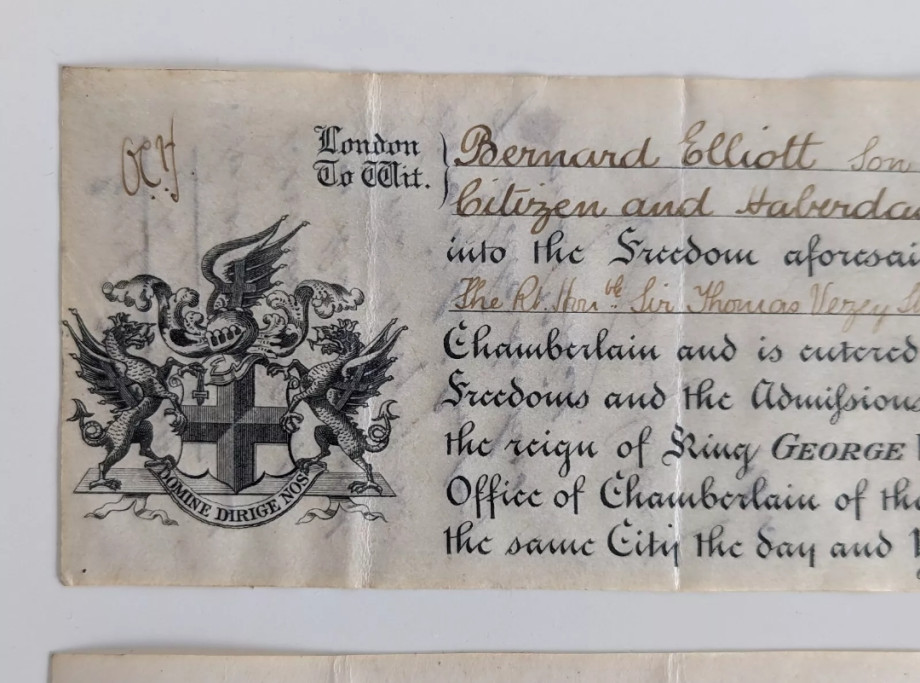 London
To Wit.
Bernard Elliott Son
Citizen and Haberda
into the Freedom aforesai
The Rt. Honble Sir Thomas Vezey S
Chamberlain and is entered
Freedoms and the Admissions
the reign of King GEORGE
Office of Chamberlain of th
the same City the day and
DOMINE DIRIGE NOS